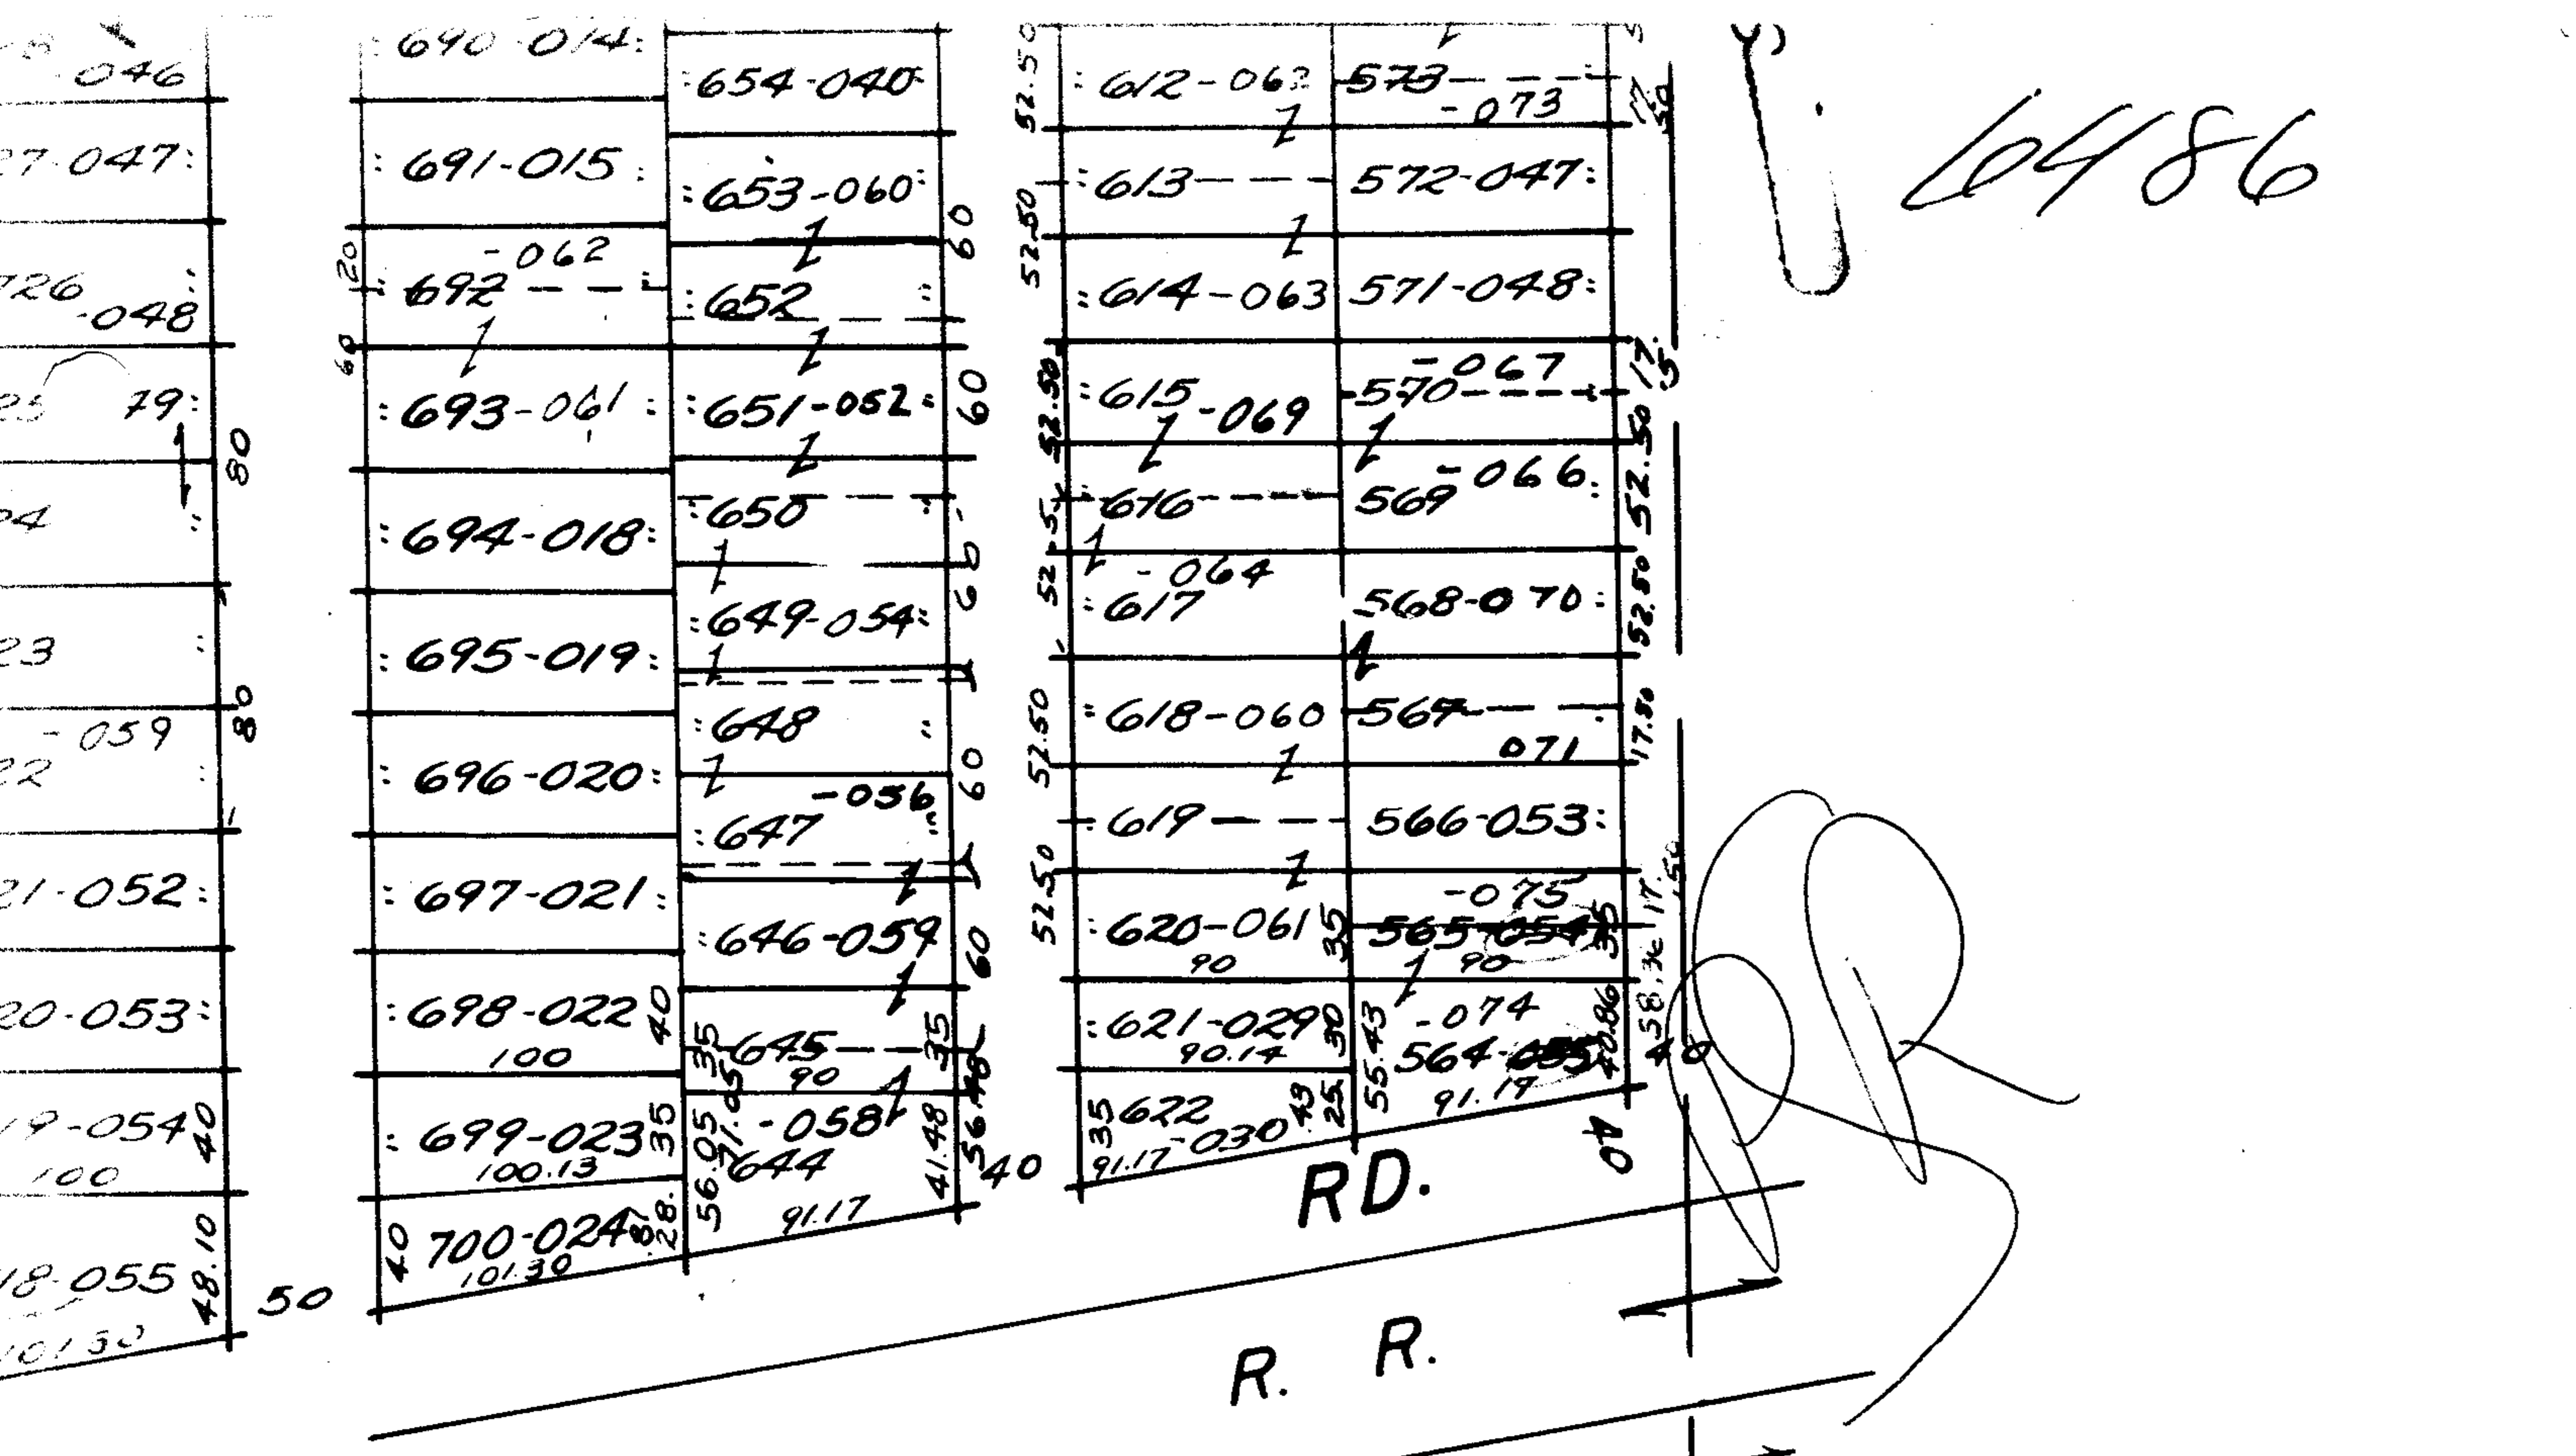 046
27-047:
726
-048
79:
80
23
80
-059
21-052:
20-053:
19-054
40
100
18-055
48.10
101.30
50
690-014:
: 691-015 :
20
-062
: 692 — — :
60
: 693-061 :
: 694-018:
: 695-019:
: 696-020:
: 697-021:
: 698-022
40
100
: 699-023
35
100.13
40
700-024
28.
.87
101.30
:654-040:
:653-060:
60
:652 :
:651-052:
60
:650
60
:649-054:
:648 "
60
-056
:647 "
:646-059
60
35
645
35
90
56.05
91.05
-058
644
41.48
56.48
91.17
40
52.50
: 612-063
52.50
:613— — —
:614-063
52.50
:615
-069
52.5
:616-----
-064
:617
52.50
:618-060
:619 — — —
52.50
:620-061
35
90
:621-029
30
90.14
35
622
-030
43
25.
91.17
573— — —
-073
17.
50
572-047:
571-048:
-067
570-----
17.
5
52.50
-066
569 :
52.50
568-070:
52.50
567— —
071
17.50
566-053:
-075
565-054
35
17.
.50
90
58.36
-074
564-055
55.43
40.86
91.19
40
40
RD.
R. R.
6486